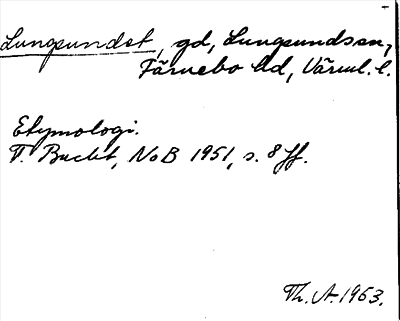 Lungsundet, gd, Lungsunds sn,
Färnebo hd, Värml. l.
Etymologi.
T. Bucht, NoB 1951, s. 8 ff.
Th. A. 1953.